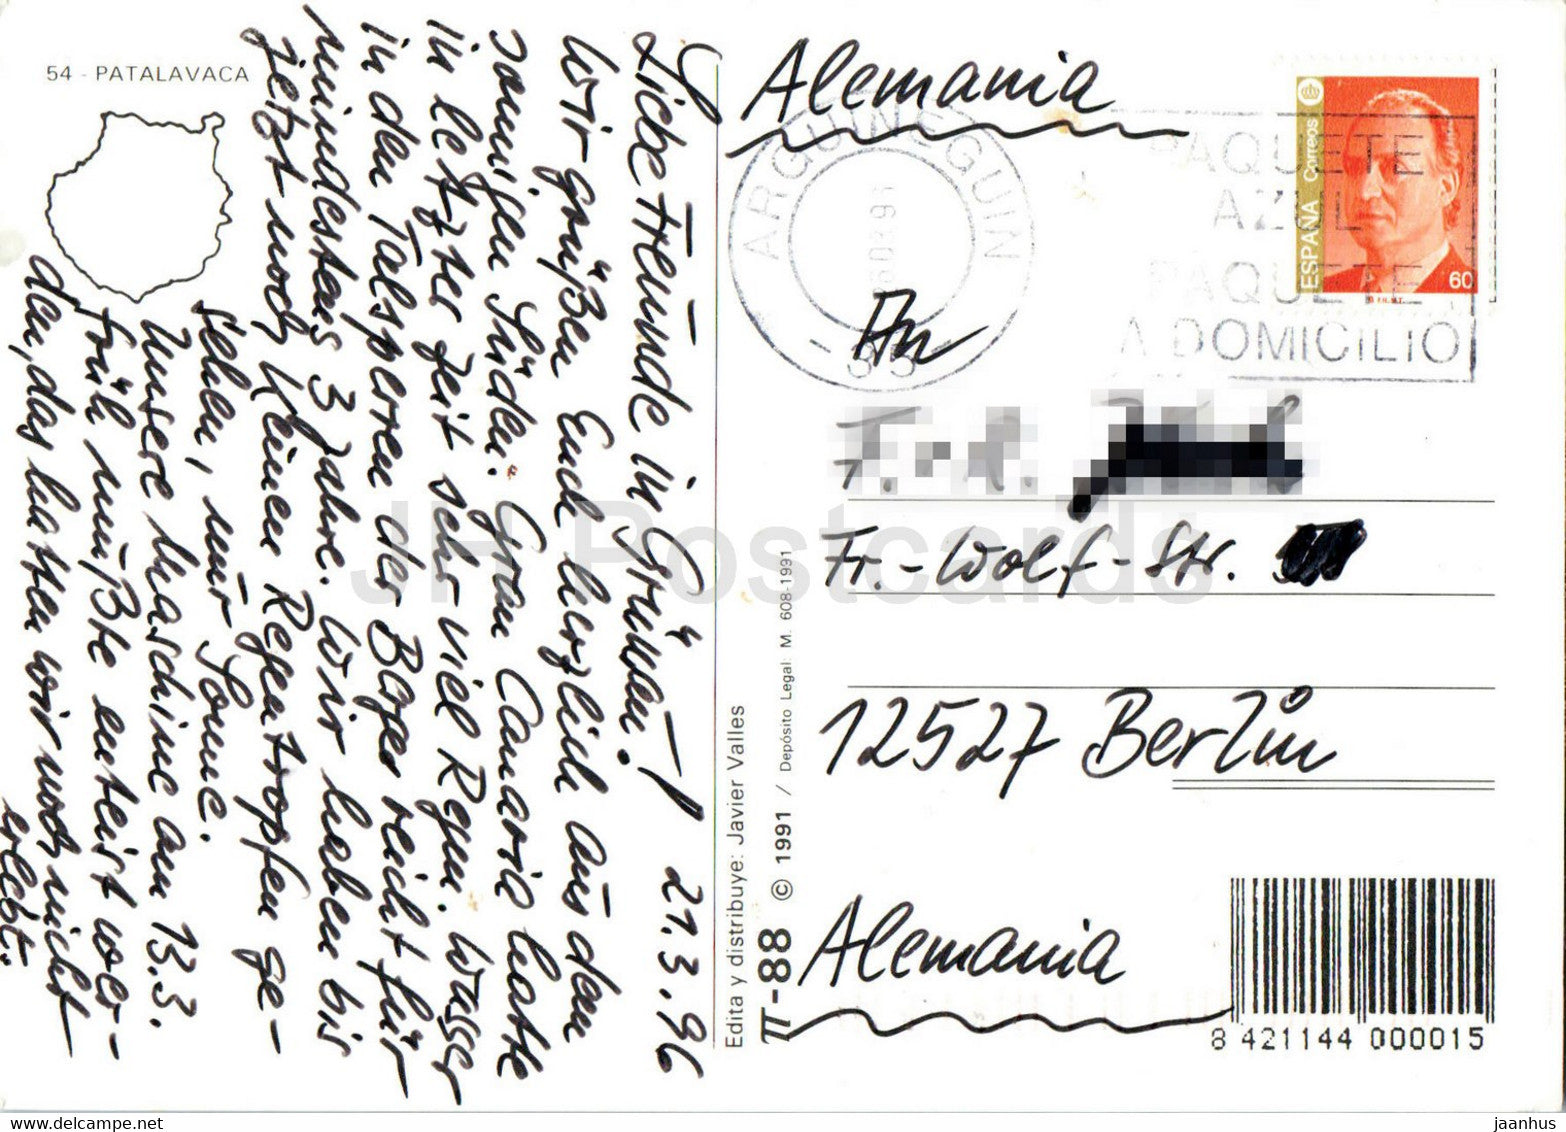 54 - PATALAVACA
Liebe Freunde in Grünau! 21.3.96
Wir grüßen Euch herzlich aus dem
sonnigen Süden. Gran Canaria hatte
in letzter Zeit sehr viel Regen. Wasser
in den Talsperren der Berge reicht für
mindestens 3 Jahre. Wir haben bis
jetzt noch keinen Regentropfen ge-
sehen, nur Sonne.
Unsere Maschine am 13.3.
früh mußte enteist wer-
den, das hatten wir noch nicht
erlebt.
Edita y distribuye: Javier Valles
π-88 © 1991 / Depósito Legal: M. 608-1991
Alemania
ARGUINEGUIN
- 35 -
PAQUETE
AZUL
PAQUETE
A DOMICILIO
ESPAÑA Correos
60
F.N.M.T.
An
Fr.-Wolf-Str.
12527 Berlin
Alemania
8 421144 000015
JH Postcards
jaanhus